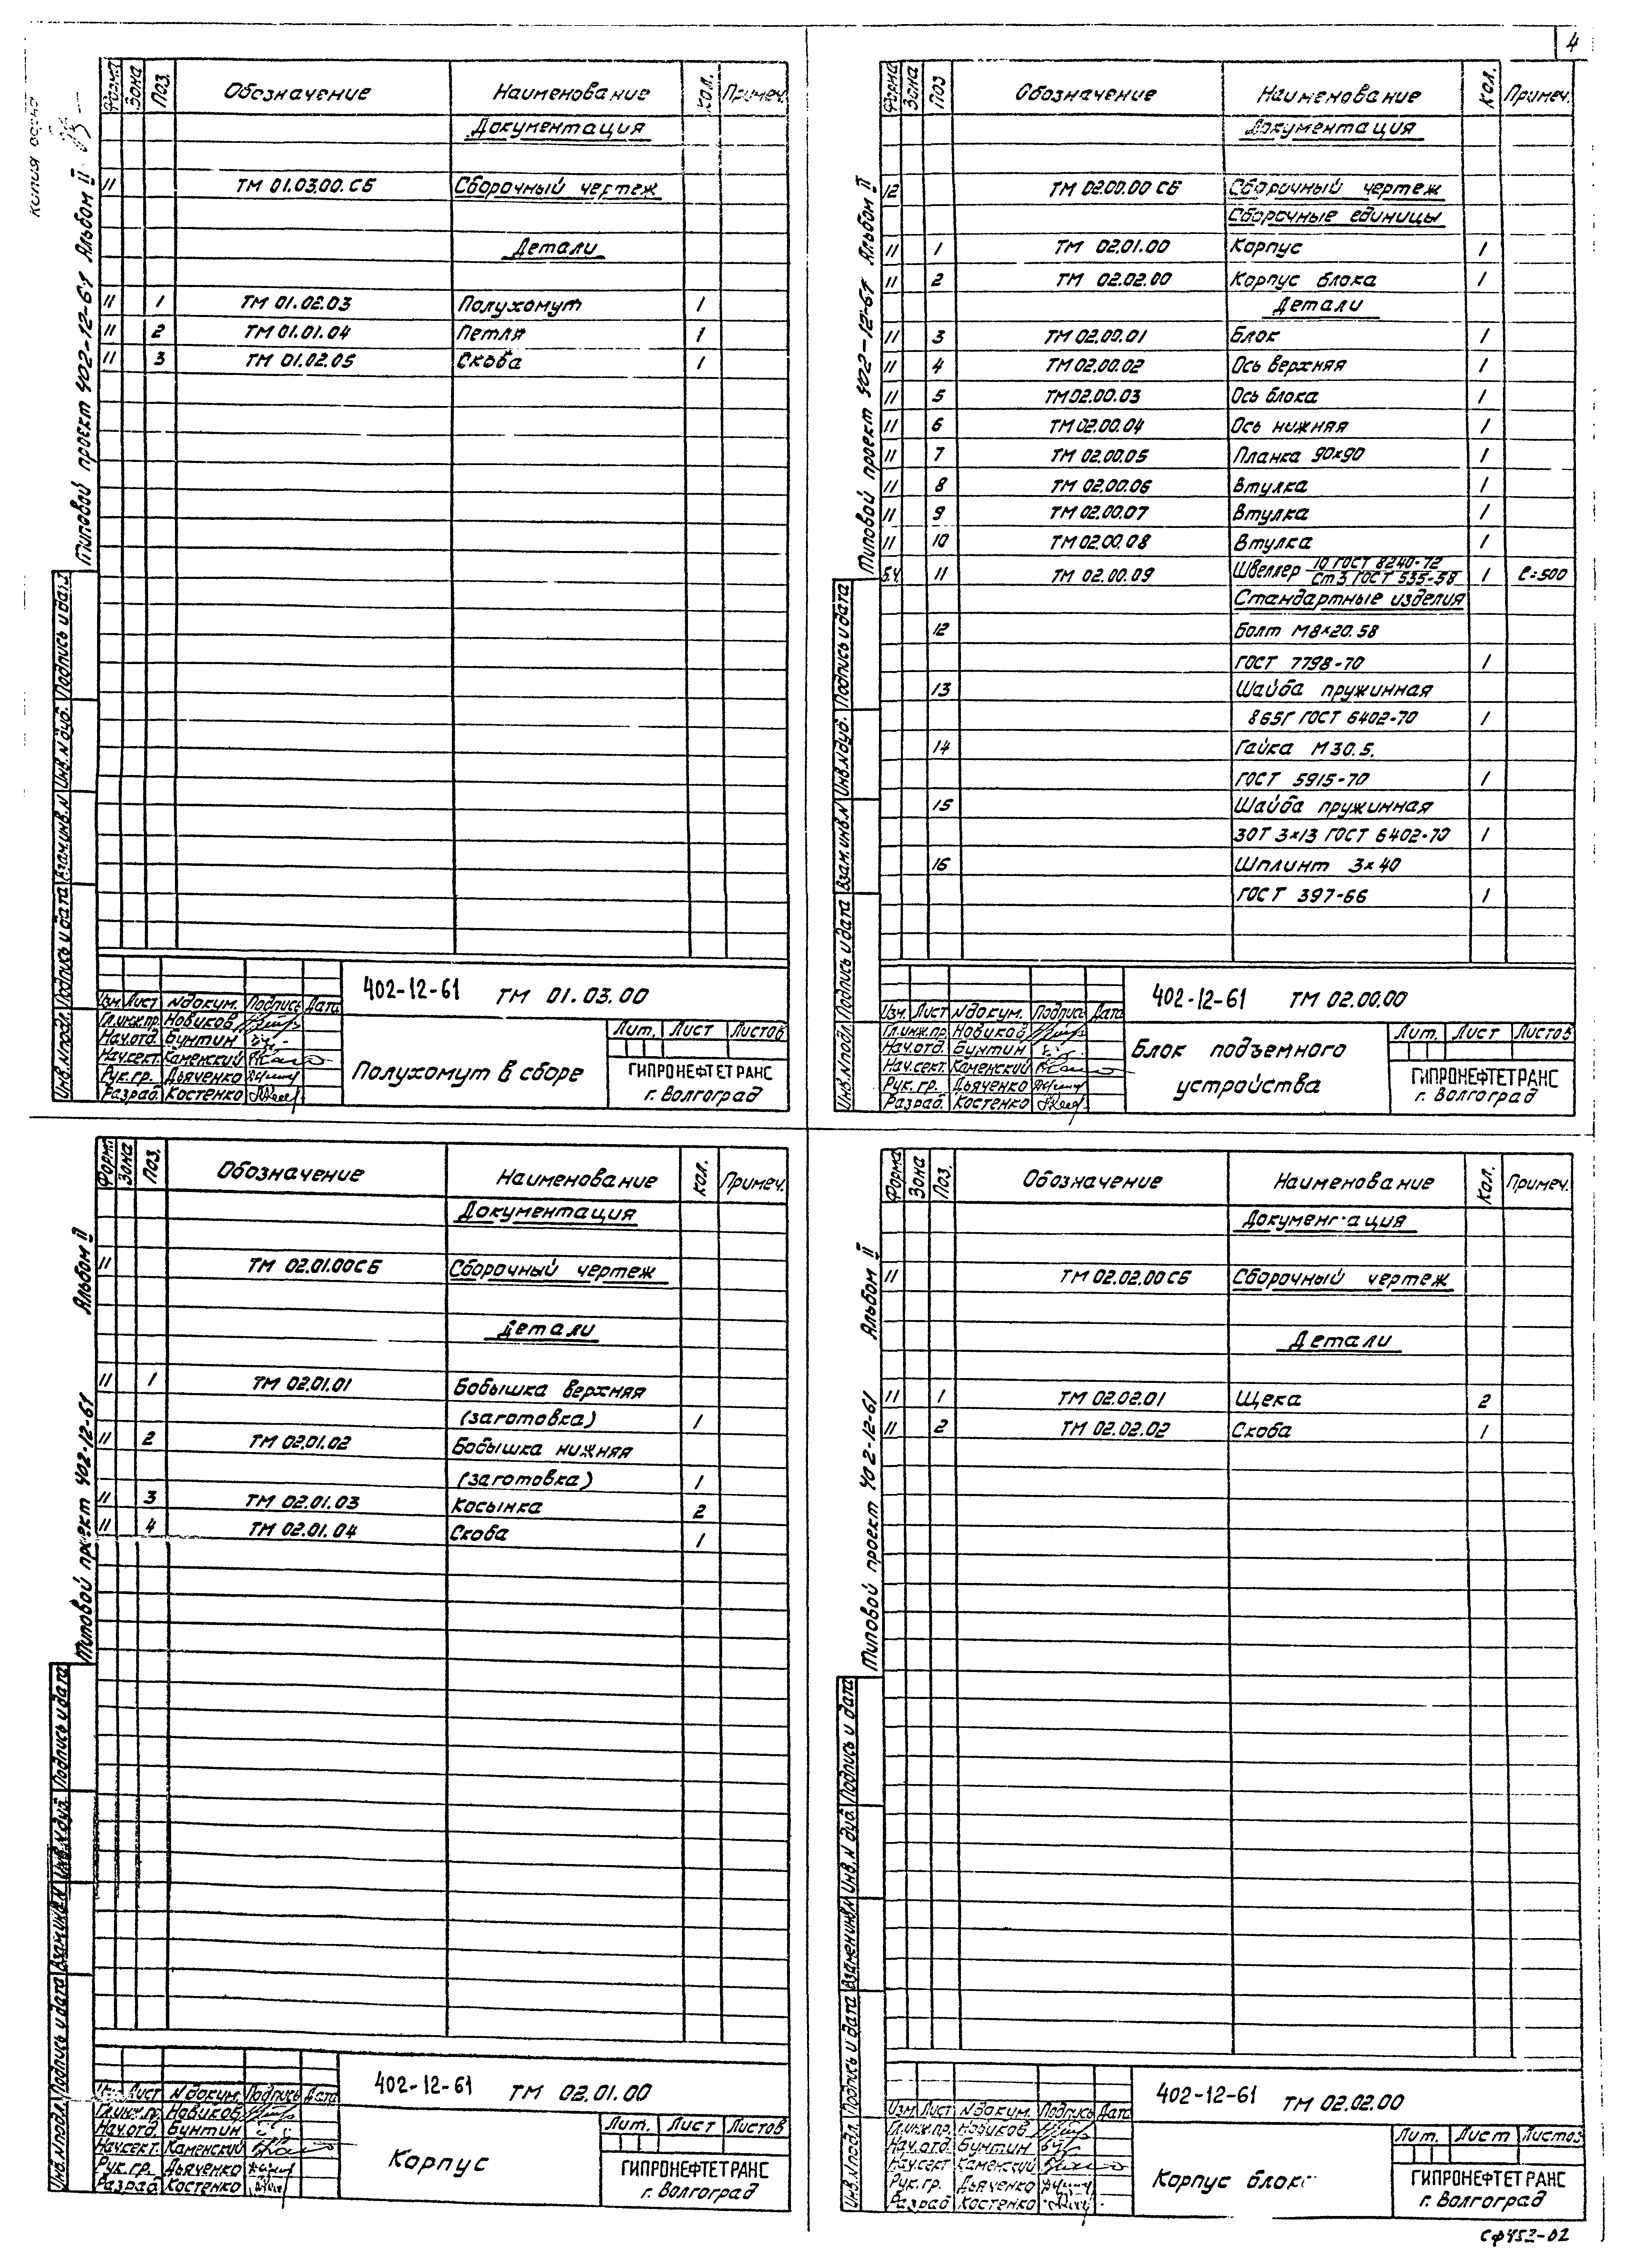 4
Типовой проект 402-12-61 Альбом II
Форм. Зона Поз. Обозначение Наименование Кол. Примеч.
Документация
11 ТМ 01.03.00.СБ Сборочный чертеж
Детали
11 1 ТМ 01.02.03 Полухомут 1
11 2 ТМ 01.01.04 Петля 1
11 3 ТМ 01.02.05 Скоба 1
Инв.№подл. Подпись и дата Взам.инв.№ Инв.№дуб. Подпись и дата
402-12-61 ТМ 01.03.00
Изм. Лист №докум. Подпись Дата
Гл.инж.пр. Новиков
Нач.отд. Бунтин
Нач.сект. Каменский
Рук.гр. Дьяченко
Разраб. Костенко
Полухомут в сборе
Лит. Лист Листов
ГИПРОНЕФТЕТРАНС
г. Волгоград
Типовой проект 402-12-61 Альбом II
Форма Зона Поз Обозначение Наименование Кол. Примеч.
Документация
12 ТМ 02.00.00 СБ Сборочный чертеж
Сборочные единицы
11 1 ТМ 02.01.00 Корпус 1
11 2 ТМ 02.02.00 Корпус блока 1
Детали
11 3 ТМ 02.00.01 Блок 1
11 4 ТМ 02.00.02 Ось верхняя 1
11 5 ТМ 02.00.03 Ось блока 1
11 6 ТМ 02.00.04 Ось нижняя 1
11 7 ТМ 02.00.05 Планка 90×90 1
11 8 ТМ 02.00.06 Втулка 1
11 9 ТМ 02.00.07 Втулка 1
11 10 ТМ 02.00.08 Втулка 1
Б.Ч. 11 ТМ 02.00.09 Швеллер 10 ГОСТ 8240-72 / Ст3 ГОСТ 535-58 1 ℓ=500
Стандартные изделия
12 Болт М8×20.58
ГОСТ 7798-70 1
13 Шайба пружинная
865Г ГОСТ 6402-70 1
14 Гайка М30.5.
ГОСТ 5915-70 1
15 Шайба пружинная
30Т 3×13 ГОСТ 6402-70 1
16 Шплинт 3×40
ГОСТ 397-66 1
Инв.№подл. Подпись и дата Взам.инв.№ Инв.№дуб. Подпись и дата
402-12-61 ТМ 02.00.00
Изм. Лист №докум. Подпись Дата
Гл.инж.пр. Новиков
Нач.отд. Бунтин
Нач.сект. Каменский
Рук.гр. Дьяченко
Разраб. Костенко
Блок подъемного
устройства
Лит. Лист Листов
ГИПРОНЕФТЕТРАНС
г. Волгоград
Типовой проект 402-12-61 Альбом II
Форм. Зона Поз. Обозначение Наименование Кол. Примеч.
Документация
11 ТМ 02.01.00СБ Сборочный чертеж
Детали
11 1 ТМ 02.01.01 Бобышка верхняя
(заготовка) 1
11 2 ТМ 02.01.02 Бобышка нижняя
(заготовка) 1
11 3 ТМ 02.01.03 Косынка 2
11 4 ТМ 02.01.04 Скоба 1
Инв.№подл. Подпись и дата Взам.инв.№ Инв.№дуб. Подпись и дата
402-12-61 ТМ 02.01.00
Изм Лист №докум. Подпись Дата
Гл.инж.пр. Новиков
Нач.отд. Бунтин
Нач.сект. Каменский
Рук.гр. Дьяченко
Разраб Костенко
Корпус
Лит. Лист Листов
ГИПРОНЕФТЕТРАНС
г. Волгоград
Типовой проект 402-12-61 Альбом II
Форма Зона Поз. Обозначение Наименование Кол. Примеч.
Документация
11 ТМ 02.02.00СБ Сборочный чертеж
Детали
11 1 ТМ 02.02.01 Щека 2
11 2 ТМ 02.02.02 Скоба 1
Инв.№подл. Подпись и дата Взамен инв.№ Инв.№ дуб. Подпись и дата
402-12-61 ТМ 02.02.00
Изм Лист №докум. Подпись Дата
Гл.инж.пр. Новиков
Нач.отд. Бунтин
Нач.сект Каменский
Рук.гр. Дьяченко
Разраб Костенко
Корпус блока
Лит. Лист Листов
ГИПРОНЕФТЕТРАНС
г. Волгоград